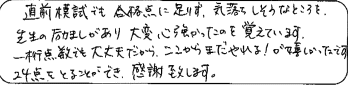 直前模試でも合格点に足りず、気落ちしそうなところを、
先生の励ましがあり大変心強かったのを覚えています。
一桁点数でも大丈夫だから、ここからまだやれる！が嬉しかったです
24点をとることができ、感謝致します。